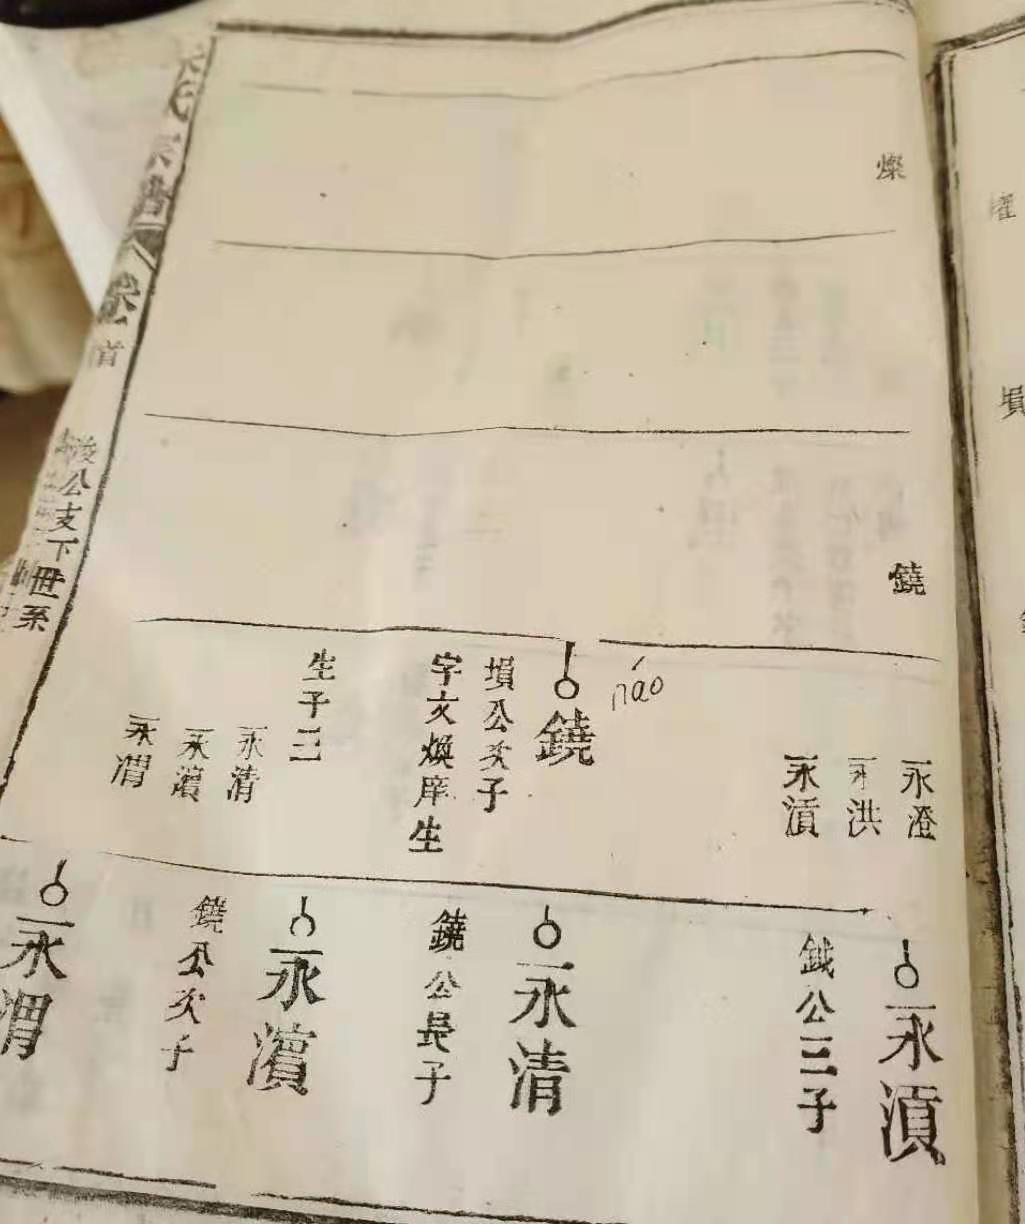 燦
鐃
永澄
永洪
永湏
鐃
náo
塤公次子
字文煥庠生
生子三
永清
永濱
永渭
永湏
鉞公三子
永清
鐃公長子
永濱
鐃公次子
永渭
氏宗譜
卷首
公支下世系
塤